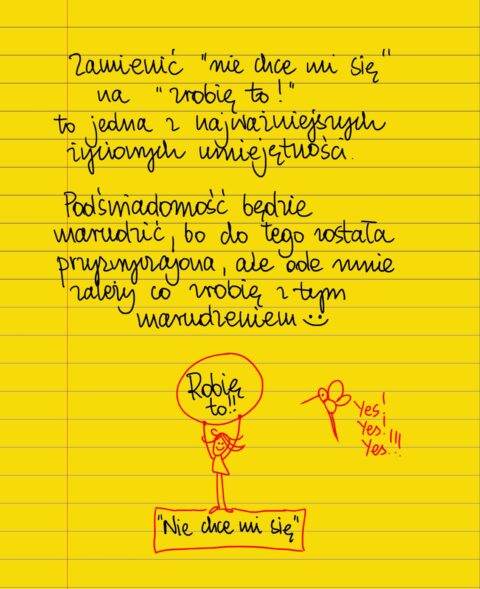 Zamienić "nie chce mi się"
na "zrobię to!"
to jedna z najważniejszych
życiowych umiejętności.
Podświadomość będzie
marudzić, bo do tego została
przyzwyczajona, ale ode mnie
zależy co zrobię z tym
marudzeniem
Robię
to!!
Yes!
Yes!!
Yes!!!
"Nie chce mi się"